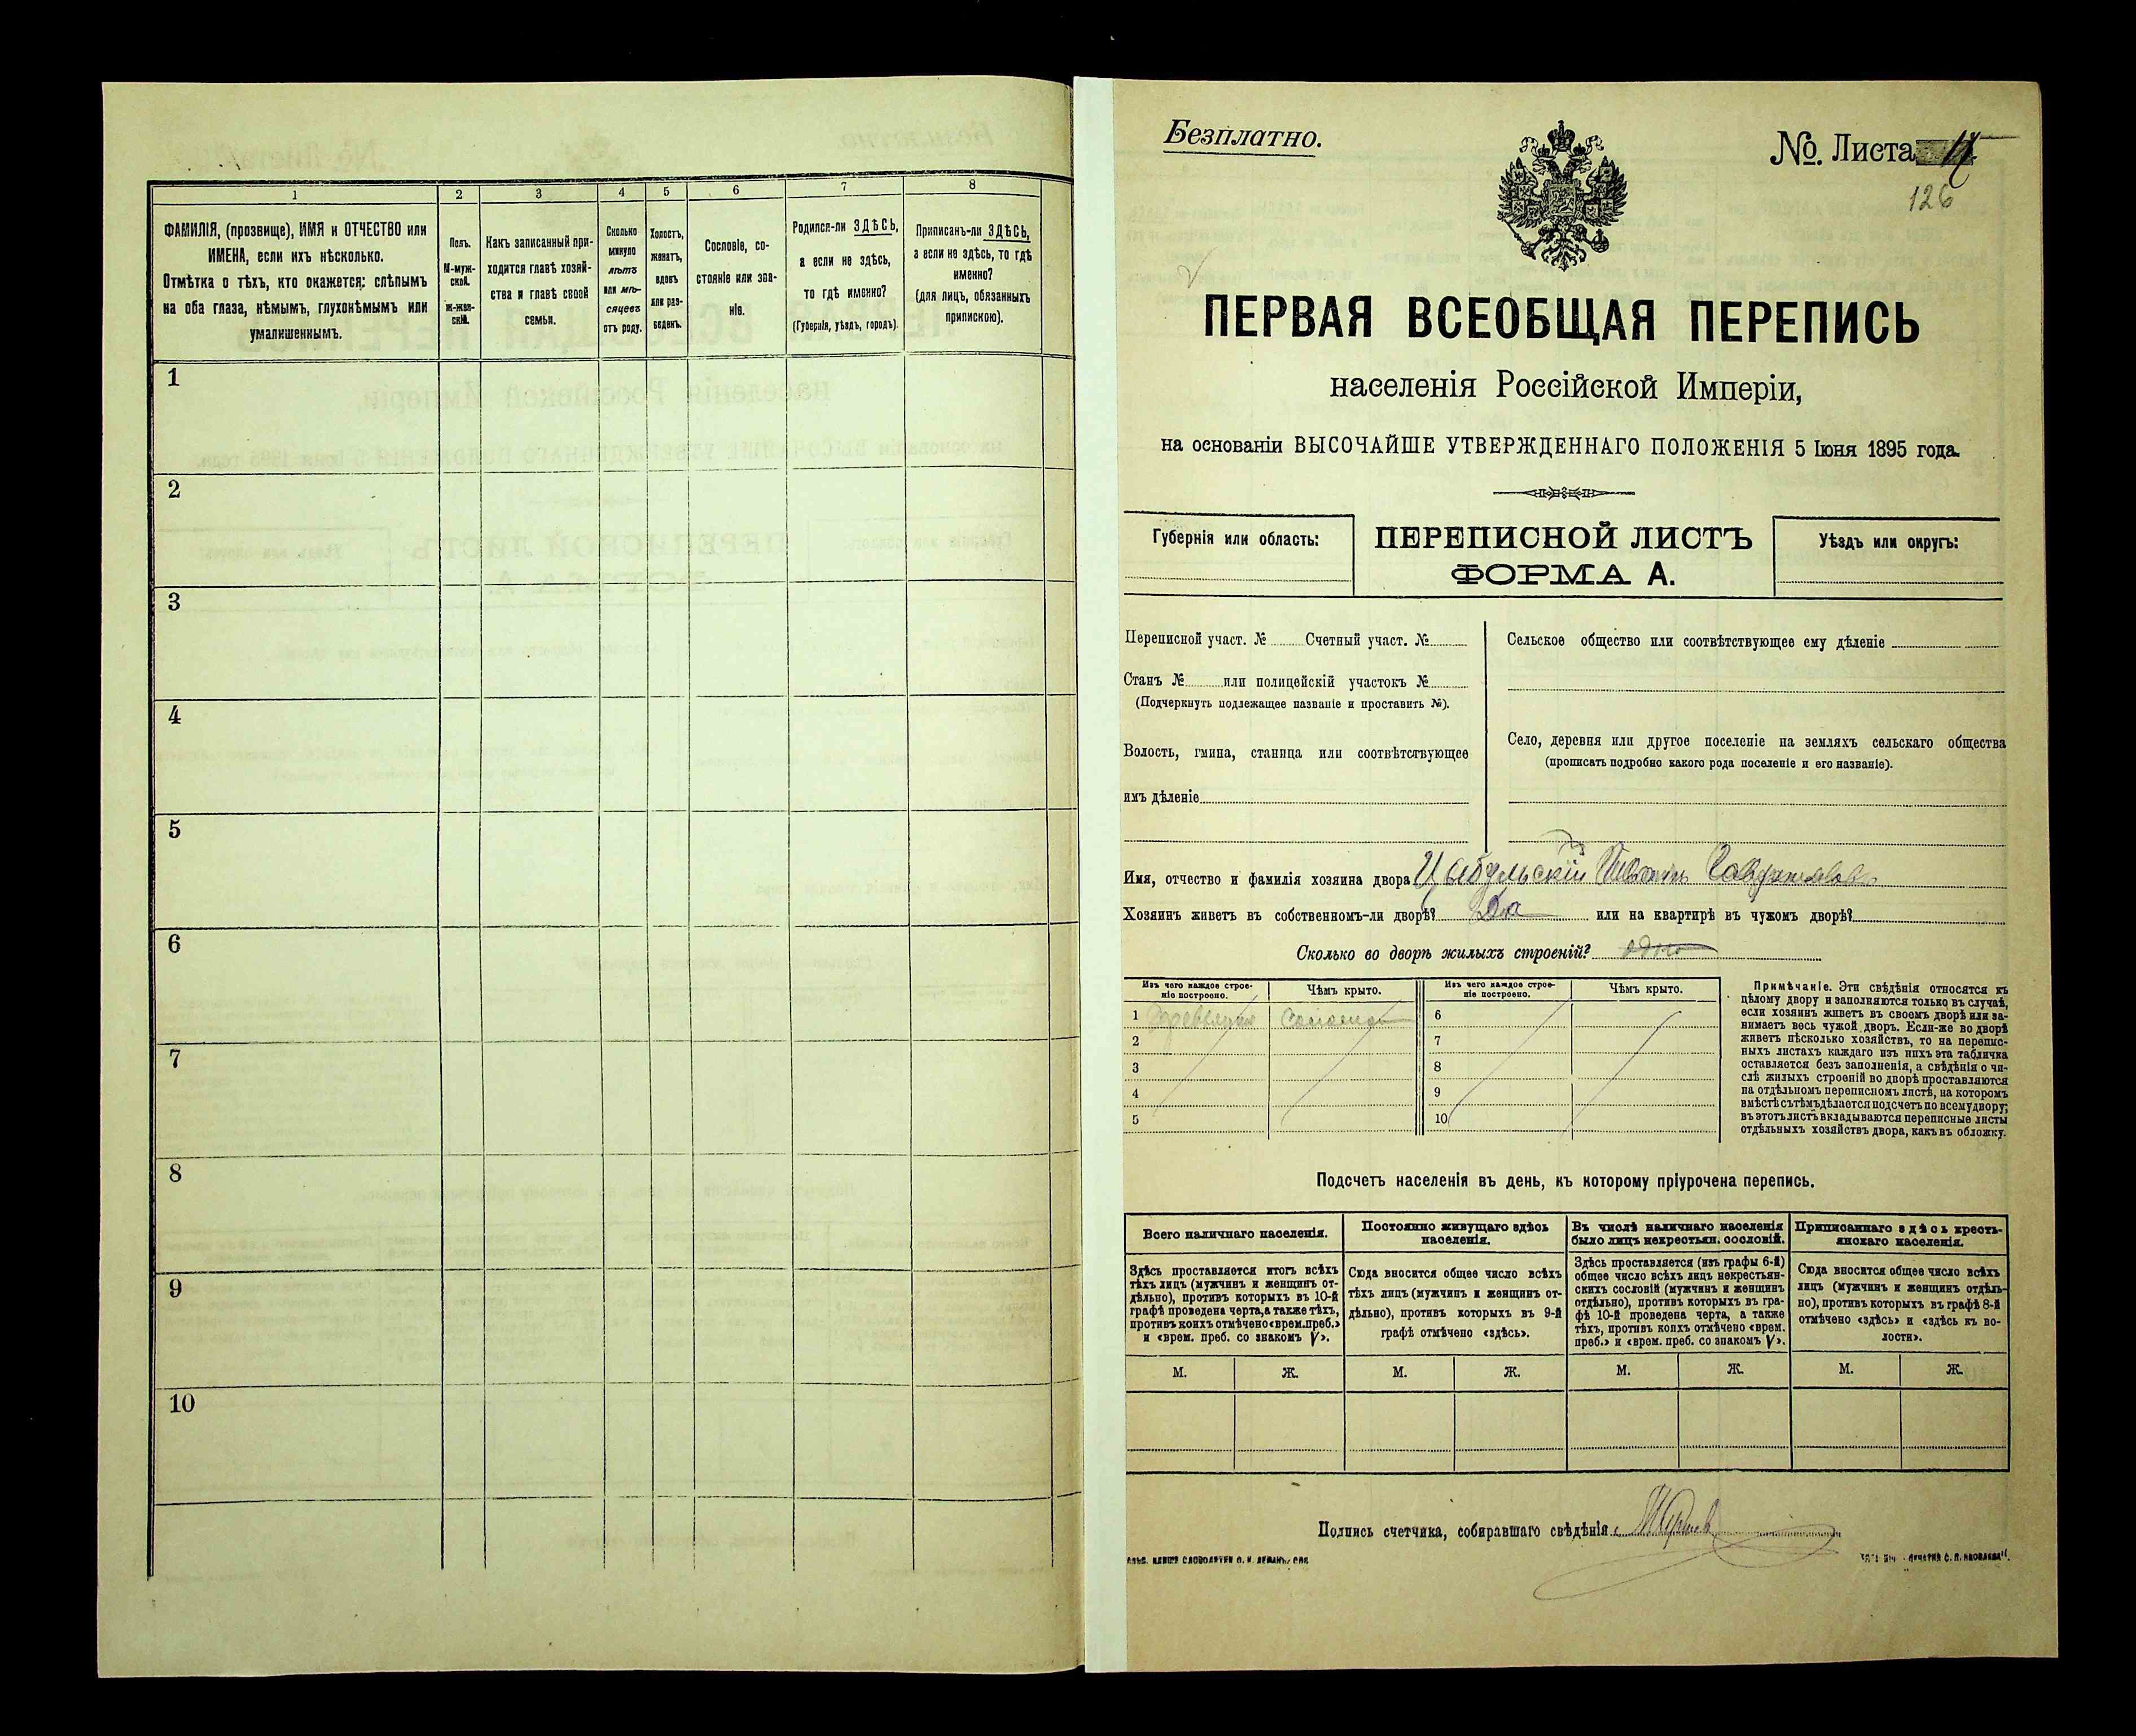 1
2
3
4
5
6
7
8
ФАМИЛІЯ, (прозвище), ИМЯ и ОТЧЕСТВО или
ИМЕНА, если ихъ нѣсколько.
Отмѣтка о тѣхъ, кто окажется: слѣпымъ
на оба глаза, нѣмымъ, глухонѣмымъ или
умалишеннымъ.
Полъ.
М-муж-
ской.
ж-жен-
скій.
Какъ записанный при-
ходится главѣ хозяй-
ства и главѣ своей
семьи.
Сколько
минуло
лѣтъ
или мѣ-
сяцевъ
отъ роду.
Холостъ,
женатъ,
вдовъ
или раз-
веденъ.
Сословіе, со-
стояніе или зва-
ніе.
Родился-ли ЗДѢСЬ,
а если не здѣсь,
то гдѣ именно?
(Губернія, уѣздъ, городъ).
Приписанъ-ли ЗДѢСЬ,
а если не здѣсь, то гдѣ
именно?
(для лицъ, обязанныхъ
припискою).
1
2
3
4
5
6
7
8
9
10
Безплатно.
№. Листа
126
ПЕРВАЯ ВСЕОБЩАЯ ПЕРЕПИСЬ
населенія Россійской Имперіи,
на основаніи ВЫСОЧАЙШЕ УТВЕРЖДЕННАГО ПОЛОЖЕНІЯ 5 Іюня 1895 года.
Губернія или область:
ПЕРЕПИСНОЙ ЛИСТЪ
ФОРМА А.
Уѣздъ или округъ:
Переписной участ. № Счетный участ. №
Станъ № или полицейскій участокъ №
(Подчеркнуть подлежащее названіе и проставить №).
Волость, гмина, станица или соотвѣтствующее
имъ дѣленіе
Сельское общество или соотвѣтствующее ему дѣленіе
Село, деревня или другое поселеніе на земляхъ сельскаго общества
(прописать подробно какого рода поселеніе и его названіе).
Имя, отчество и фамилія хозяина двора Цыбульскій
Хозяинъ живетъ въ собственномъ-ли дворѣ? Да или на квартирѣ въ чужомъ дворѣ?
Сколько во дворѣ жилыхъ строеній? одно
Изъ чего каждое строе-
ніе построено.
Чѣмъ крыто.
Изъ чего каждое строе-
ніе построено.
Чѣмъ крыто.
1
6
2
7
3
8
4
9
5
10
Примѣчаніе. Эти свѣдѣнія относятся къ
цѣлому двору и заполняются только въ случаѣ,
если хозяинъ живетъ въ своемъ дворѣ или за-
нимаетъ весь чужой дворъ. Если-же во дворѣ
живетъ нѣсколько хозяйствъ, то на перепис-
ныхъ листахъ каждаго изъ нихъ эта табличка
оставляется безъ заполненія, а свѣдѣнія о чи-
слѣ жилыхъ строеній во дворѣ проставляются
на отдѣльномъ переписномъ листѣ, на которомъ
вмѣстѣ съ тѣмъ дѣлается подсчетъ по всему двору;
въ этотъ листъ вкладываются переписные листы
отдѣльныхъ хозяйствъ двора, какъ въ обложку.
Подсчетъ населенія въ день, къ которому пріурочена перепись.
Всего наличнаго населенія.
Постоянно живущаго здѣсь
населенія.
Въ числѣ наличнаго населенія
было лицъ некрестьян. сословій.
Приписаннаго здѣсь кресть-
янскаго населенія.
Здѣсь проставляется итогъ всѣхъ
тѣхъ лицъ (мужчинъ и женщинъ от-
дѣльно), противъ которыхъ въ 10-й
графѣ проведена черта, а также тѣхъ,
противъ коихъ отмѣчено «врем. преб.»
и «врем. преб. со знакомъ V».
Сюда вносится общее число всѣхъ
тѣхъ лицъ (мужчинъ и женщинъ от-
дѣльно), противъ которыхъ въ 9-й
графѣ отмѣчено «здѣсь».
Здѣсь проставляется (изъ графы 6-й)
общее число всѣхъ лицъ некрестьян-
скихъ сословій (мужчинъ и женщинъ
отдѣльно), противъ которыхъ въ гра-
фѣ 10-й проведена черта, а также
тѣхъ, противъ коихъ отмѣчено «врем.
преб.» и «врем. преб. со знакомъ V».
Сюда вносится общее число всѣхъ
лицъ (мужчинъ и женщинъ отдѣль-
но), противъ которыхъ въ графѣ 8-й
отмѣчено «здѣсь» и «здѣсь къ во-
лости».
М.
Ж.
М.
Ж.
М.
Ж.
М.
Ж.
Подпись счетчика, собиравшаго свѣдѣнія